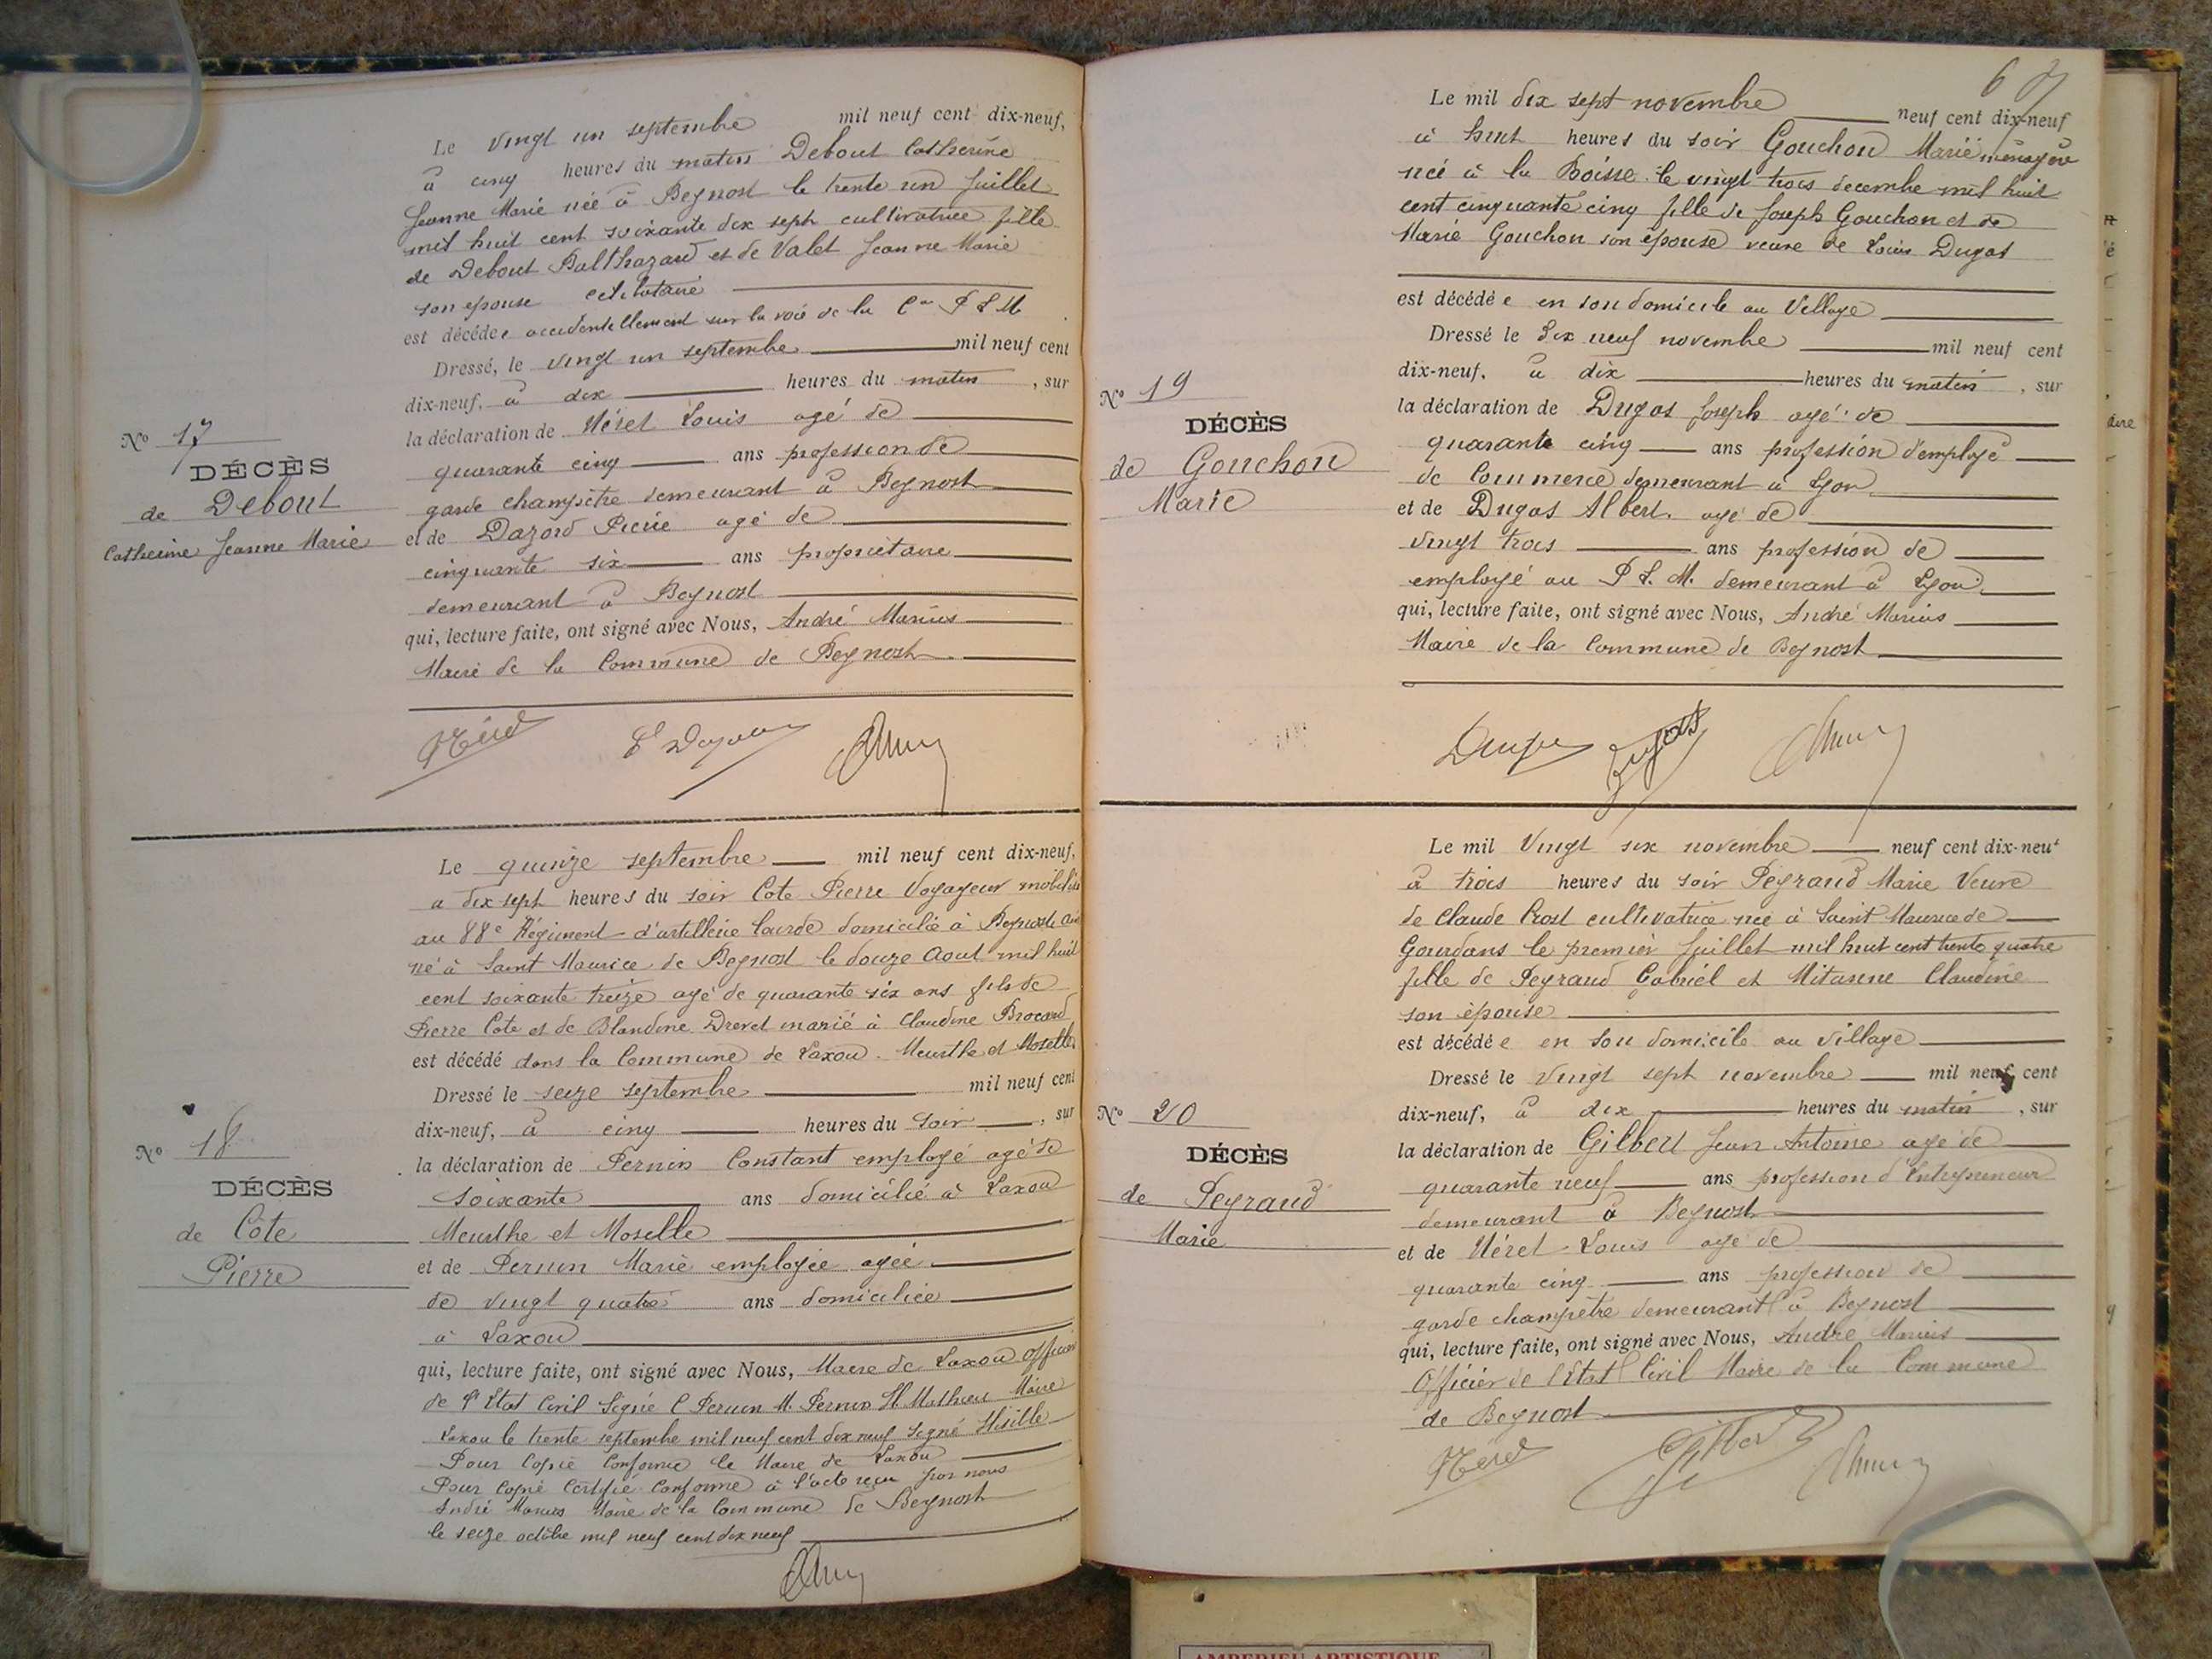 Le vingt un septembre mil neuf cent dix-neuf,
à cinq heures du matin Debout Catherine
Jeanne Marie née à Beynost le trente un Juillet
mil huit cent soixante dix sept cultivatrice fille
de Debout Balthazard et de Valet Jeanne Marie
son epouse celibataire
est décédée accidentellement sur la voie de la Cie P L M
Dressé, le vingt un septembre mil neuf cent
dix-neuf, à dix heures du matin, sur
la déclaration de Néret Louis agé de
quarante cinq ans profession de
garde champêtre demeurant à Beynost
et de Dazord Pierre agé de
cinquante six ans propriétaire
demeurant à Beynost
qui, lecture faite, ont signé avec Nous, André Marius
Maire de la Commune de Beynost
No 17
DÉCÈS
de Debout
Catherine Jeanne Marie
Le quinze septembre mil neuf cent dix-neuf,
a dix sept heures du soir Cote Pierre Voyageur mobilisé
au 88e Régiment d'artillerie lourde domicilié à Beynost Ain
né à Saint Maurice de Beynost le douze Aout mil huit
cent soixante treize agé de quarante six ans fils de
Pierre Cote et de Blandine Drevet marié à Claudine Brocard
est décédé dans la Commune de Laxou. Meurthe et Moselle
Dressé le seize septembre mil neuf cent
dix-neuf, à cinq heures du soir, sur
la déclaration de Pernin Constant employé agé de
soixante ans domicilié à Laxou
Meurthe et Moselle
et de Pernin Marie employée agée
de vingt quatre ans domiciliée
à Laxou
qui, lecture faite, ont signé avec Nous, Maire de Laxou officier
de l'Etat Civil Signé C Pernin M. Pernin H Mathieu Maire
Laxou le trente septembre mil neuf cent dix neuf Signé
Pour Copie Conforme le Maire de Laxou
Pour Copie Certifié Conforme à l'acte reçu par nous
André Marius Maire de la Commune de Beynost
le seize octobre mil neuf cent dix neuf
No 18
DÉCÈS
de Côte
Pierre
6
Le mil dix sept novembre neuf cent dix-neuf
à huit heures du soir Gouchon Marie ménagère
née à la Boisse le vingt trois decembre mil huit
cent cinquante cinq fille de Joseph Gouchon et de
Marie Gouchon son épouse veuve de Louis Dugas
est décédée en son domicile au Village
Dressé le Dix neuf novembre mil neuf cent
dix-neuf, à dix heures du matin, sur
la déclaration de Dugas Joseph agé de
quarante cinq ans profession d'employé
de Commerce demeurant à Lyon
et de Dugas Albert agé de
vingt trois ans profession de
employé au P. L. M. demeurant à Lyon
qui, lecture faite, ont signé avec Nous, André Marius
Maire de la Commune de Beynost
Dugas
No 19
DÉCÈS
de Gouchon
Marie
Le mil Vingt six novembre neuf cent dix-neuf
à trois heures du soir Peyraud Marie Veuve
de Claude Prost cultivatrice née à Saint Maurice de
Gourdans le premier Juillet mil huit cent trente quatre
fille de Peyraud Gabriel et Mitanne Claudine
son épouse
est décédée en son domicile au village
Dressé le Vingt sept novembre mil neuf cent
dix-neuf, à dix heures du matin, sur
la déclaration de Gilbert Jean Antoine agé de
quarante neuf ans profession d'Entrepreneur
demeurant à Beynost
et de Néret Louis agé de
quarante cinq ans profession de
garde champêtre demeurant à Beynost
qui, lecture faite, ont signé avec Nous, André Marius
Officier de l'Etat Civil Maire de la Commune
de Beynost
Gilbert
No 20
DÉCÈS
de Peyraud
Marie
AMBERIEU ARTISTIQUE